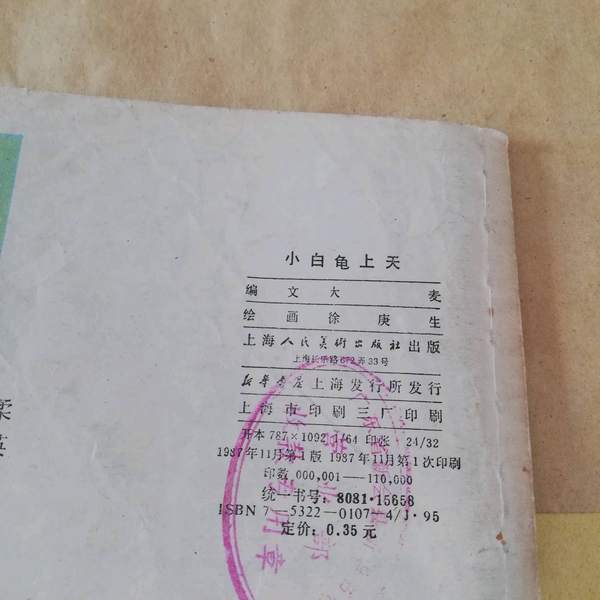 小白龟上天
编文 大麦
绘画 徐庚生
上海人民美術出版社出版
上海长乐路672弄33号
新华书店上海发行所发行
上海市印刷三厂印刷
开本 787×1092 1/64 印张 24/32
1987年11月第1版 1987年11月第1次印刷
印数 000,001—110,000
统一书号：8081·15658
ISBN 7—5322—0107—4/J·95
定价：0.35元